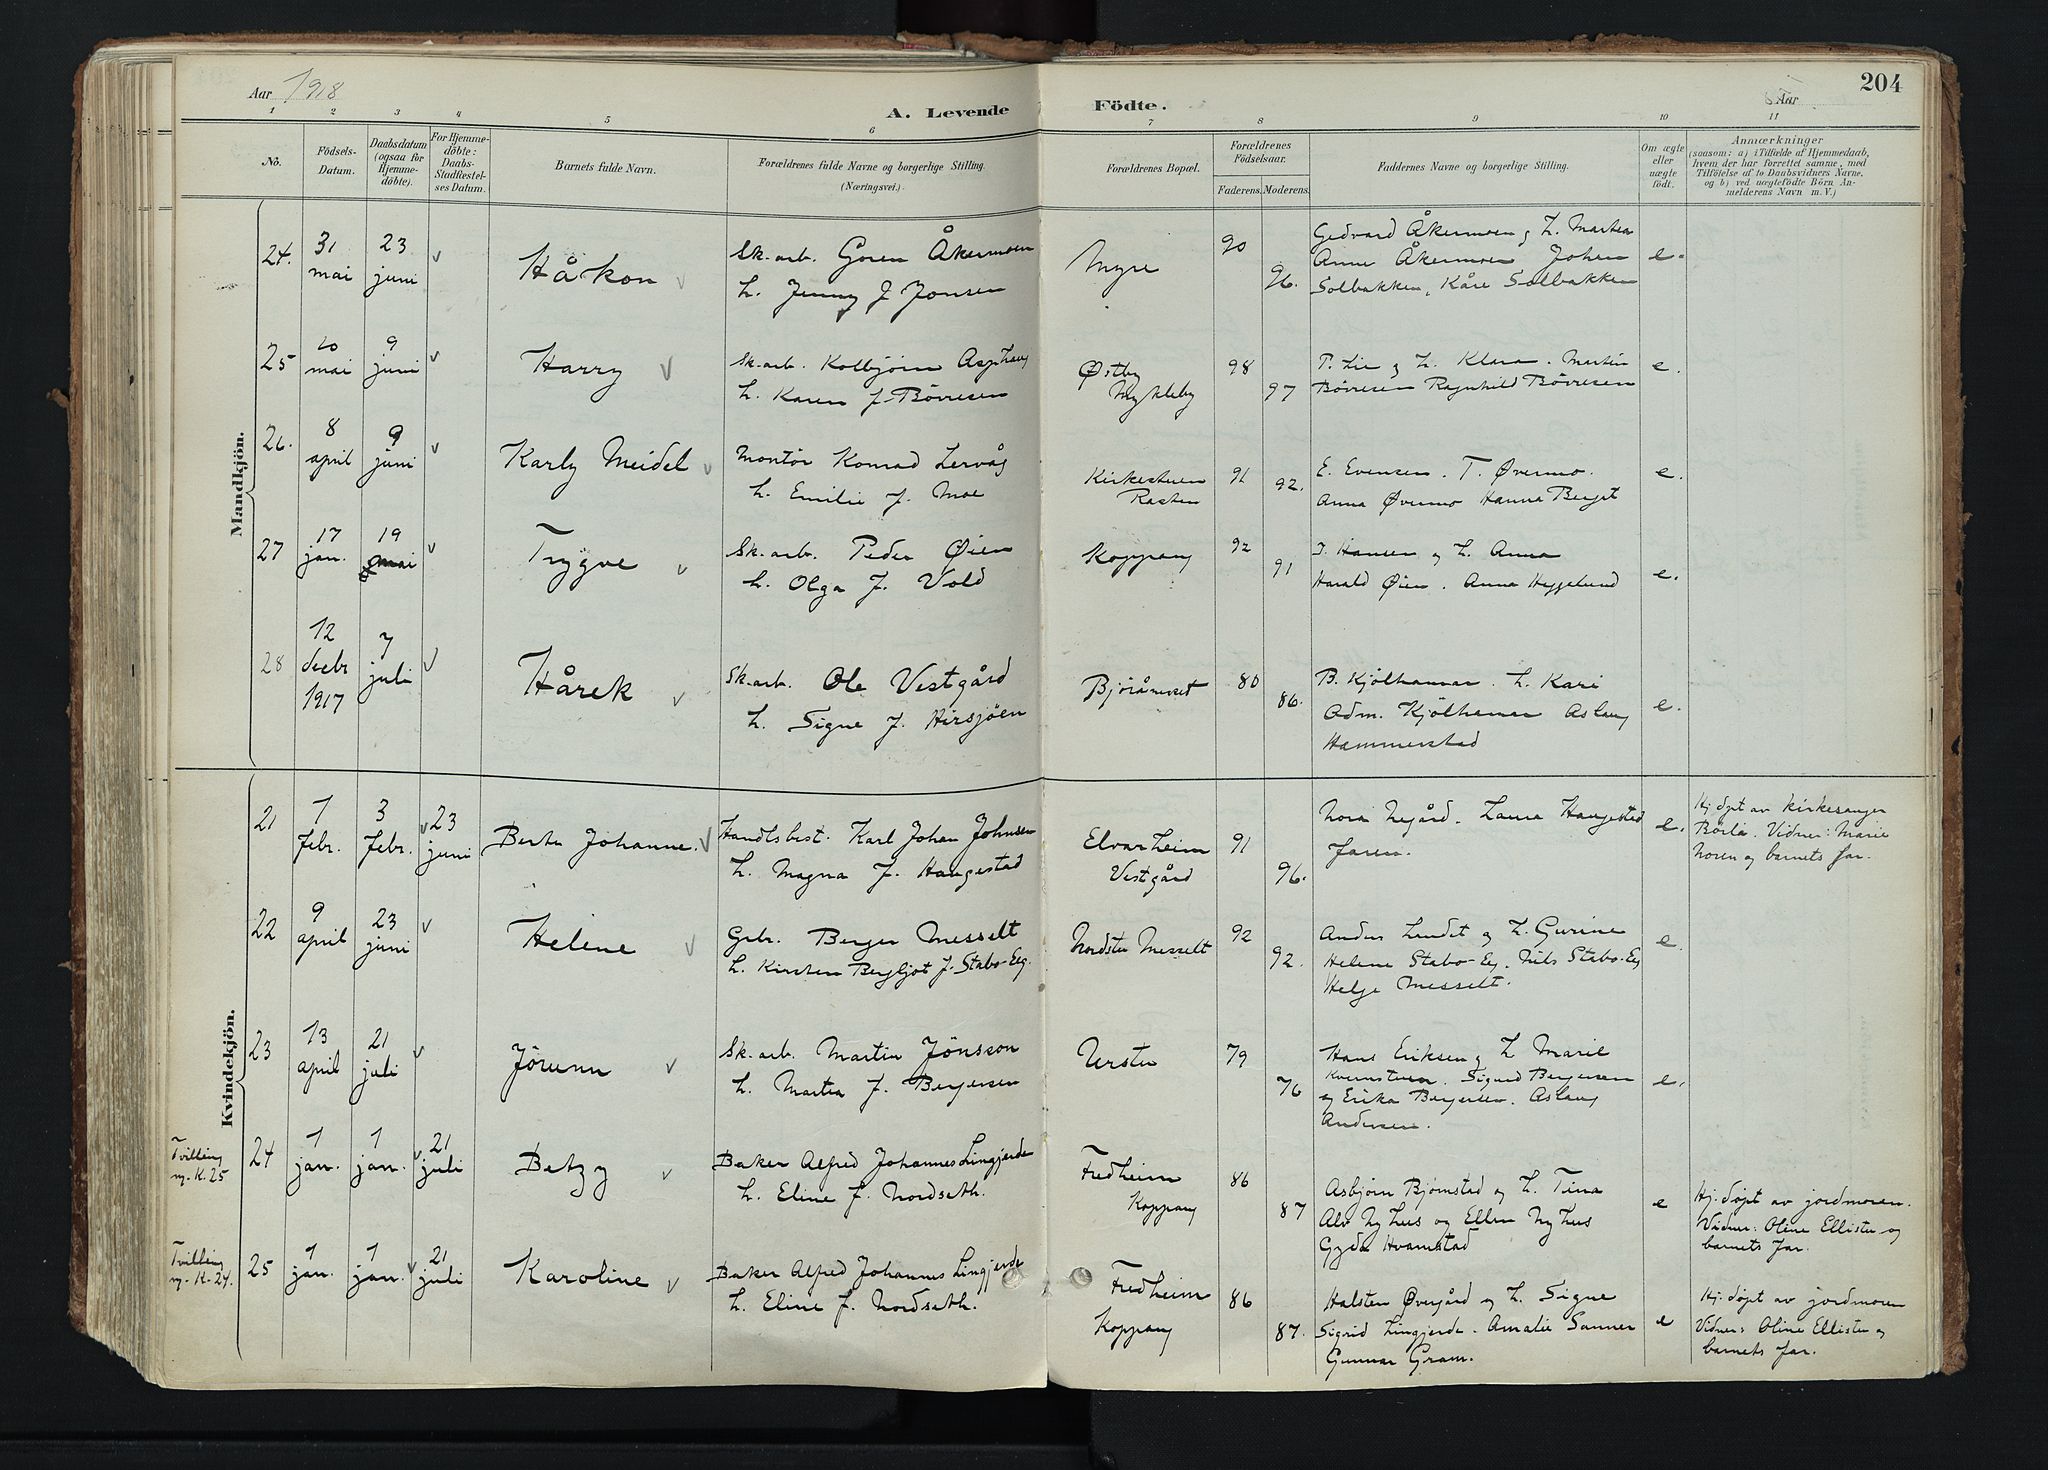 Aar 1918
A. Levende Födte.
Aar
204
1 2 3 4 5 6 7 8 9 10 11
No.
Födsels-Datum.
Daabsdatum (ogsaa for Hjemme-döbte).
For Hjemme-döbte: Daabs-Stadfæstel-ses Datum.
Barnets fulde Navn.
Forældrenes fulde Navne og borgerlige Stilling.
(Næringsvei.)
Forældrenes Bopæl.
Forældrenes Födselsaar.
Faderens. Moderens.
Faddernes Navne og borgerlige Stilling.
Om ægte eller uægte födt.
Anmærkninger
(saasom: a) i Tilfælde af Hjemmedaab,
hvem der har forrettet samme, med
Tilföielse af to Daabsvidners Navne,
og b) ved uægtefödte Börn An-
melderens Navn m. V.)
Mandkjön.
24. 31 mai 23 juni v Håkon v
Sk.arb. Gören Åkermoen
h. Jenny f. Jonsen
Myre 90 96.
Gedvard Åkermoen og h. Martea
Anne Åkermoen Johan
Solbakken, Kåre Solbakken
e.
25 20 mai 9 juni v Harry v
Sk.arb. Kolbjörn Asphaug
h. Karen f. Börresen
Østby Mykleby 98 97
P. Lie og h. Klara. Martin
Börresen Ragnhild Börresen
e.
26. 8 april 9 juni v Karly Meidel v
Montör Konrad Lervåg
h. Emilie f. Moe
Kirkestuen Rasten 91 92.
E. Evensen. T. Øvermo.
Anna Øvermo Hanna Berget
e.
27 17 jan. 19 mai v Trygve v
Sk.arb. Peder Øien
h. Olga f. Vold
Koppang 92 91
J. Hansen og h. Anna
Harald Øien. Anna Heggelund
e.
28 12 decbr 1917 7 juli v Hårek v
Sk.arb. Ole Vestgård
h. Signe f. Hirsjöen
Björåneset 80 86.
B. Kjölhamar. h. Kari
Adm. Kjölhamar Aslaug
Hammerstad
e.
Kvindekjön.
21 7 febr. 3 febr. v 23 juni Berte Johanne. v
Handlsbest. Karl Johan Johnsen
h. Magna f. Haugestad
Elvarheim Vestgård 91 96.
Nora Nygård. Laura Haugestad
faren.
e.
Hj. döpt av kirkesanger
Börli. Vidner: Marie
Noren og barnets far.
22 9 april 23 juni v Helene v
Gbr. Berger Messelt
h. Kirsten Bergljot f. Stabo-Eeg.
Nordstu Messelt 92 92.
Anders Lundet og h. Gurine
Helene Stabo-Eeg. Nils Stabo-Eeg
Helge Messelt.
e.
23 13 april 21 juli v Jörunn v
Sk.arb. Martin Jönsson
h. Martea f. Bergersen
Urstu 79 76
Hans Eriksen og h Marie
Kvernstuen. Sigurd Bergersen
og Erika Bergersen. Aslaug
Andersen.
e.
Tvilling m. K. 25
24 1 jan. 1 jan. v 21 juli Betzy v
Baker Alfred Johannes Lingjerde
h. Eline f. Nordseth.
Fredheim Koppang 86 87
Asbjörn Bjömstad og h. Tina
Alv Nyhus og Ellen Nyhus
Gyda Hvamstad
e
Hj. döpt av jordmoren.
Vidner: Oline Ellistu og
barnets far.
Tvilling m. K. 24.
25 1 jan. 1 jan. v 21 juli Karoline v
Baker Alfred Johannes Lingjerde
h. Eline f. Nordseth.
Fredheim Koppang 86 87.
Halsten Övergård og h. Signe
Sigrid Lingjerde. Amalie Sanner
Gunnar Gram.
e
Hj. döpt av jordmoren
Vidner: Oline Ellistu og
barnets far.